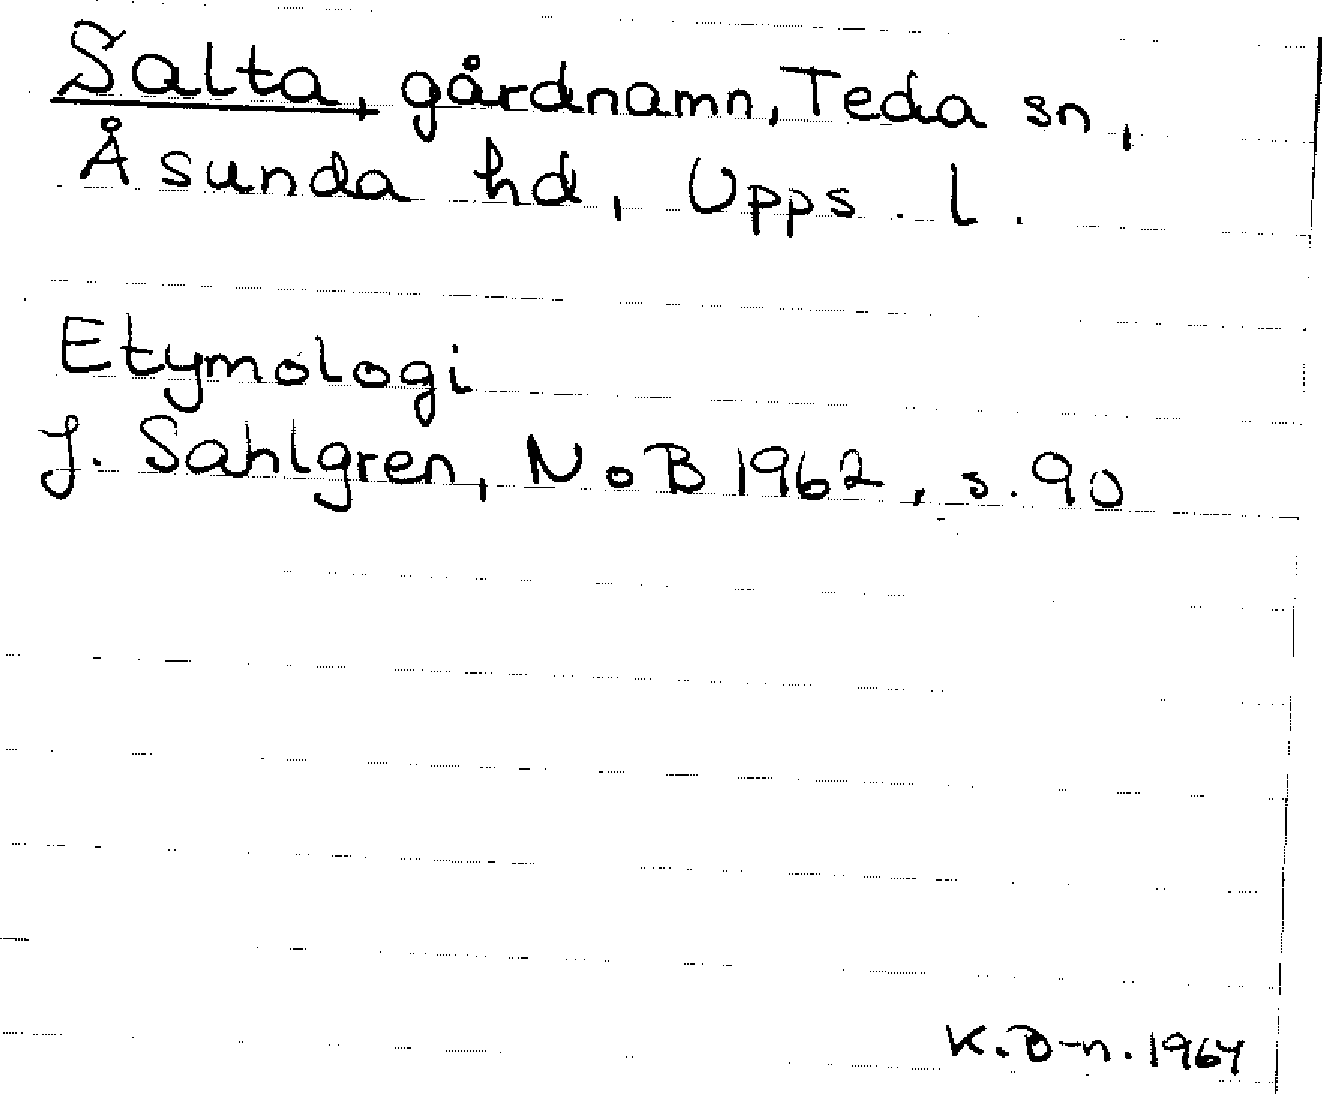 Salta, gårdnamn, Teda sn,
Åsunda hd, Upps. l.
Etymologi
J. Sahlgren, NoB 1962, s. 90
K. D-n. 1964